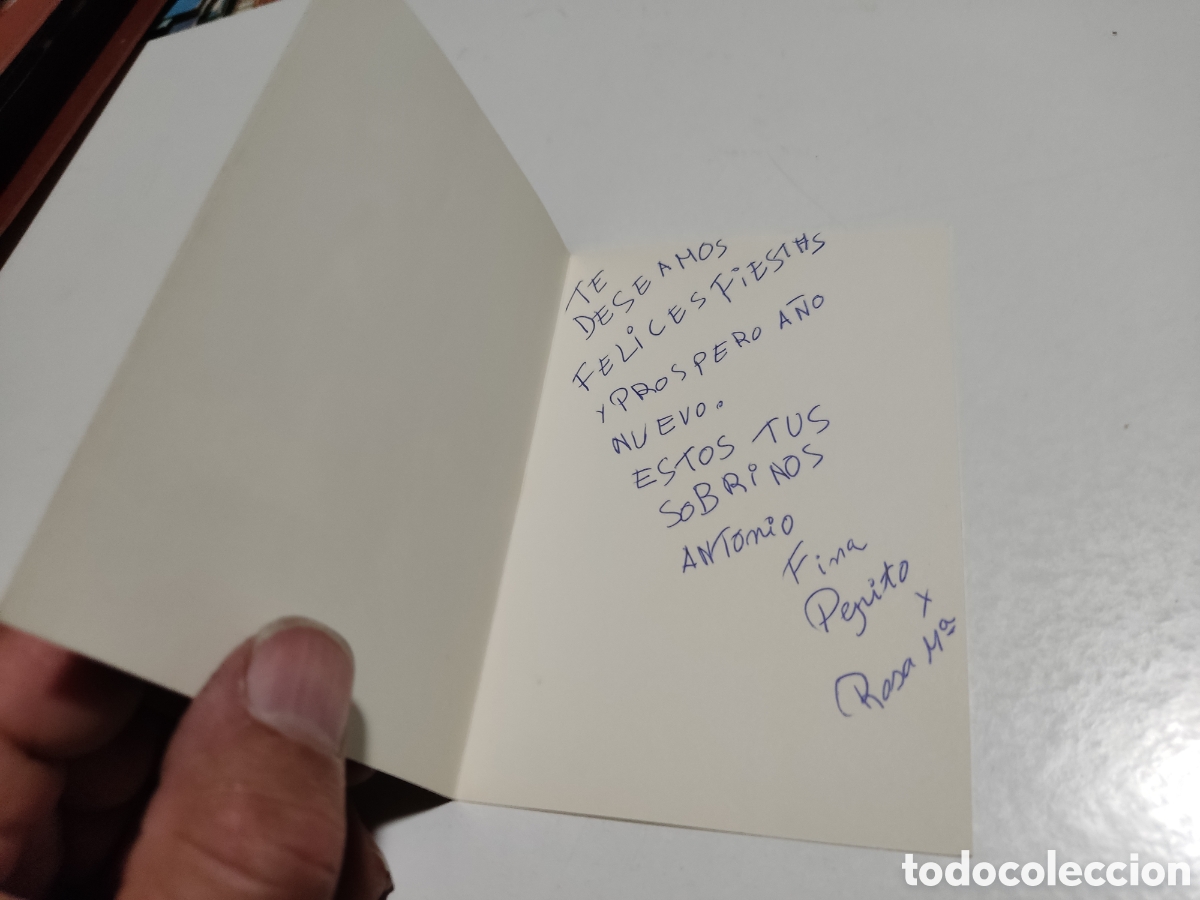 TE
DESEAMOS
FELICES FIESTAS
Y PROSPERO AÑO
NUEVO.
ESTOS TUS
SOBRINOS
ANTONIO
Fina
Pepito
Y
Rosa Mª
todocoleccion